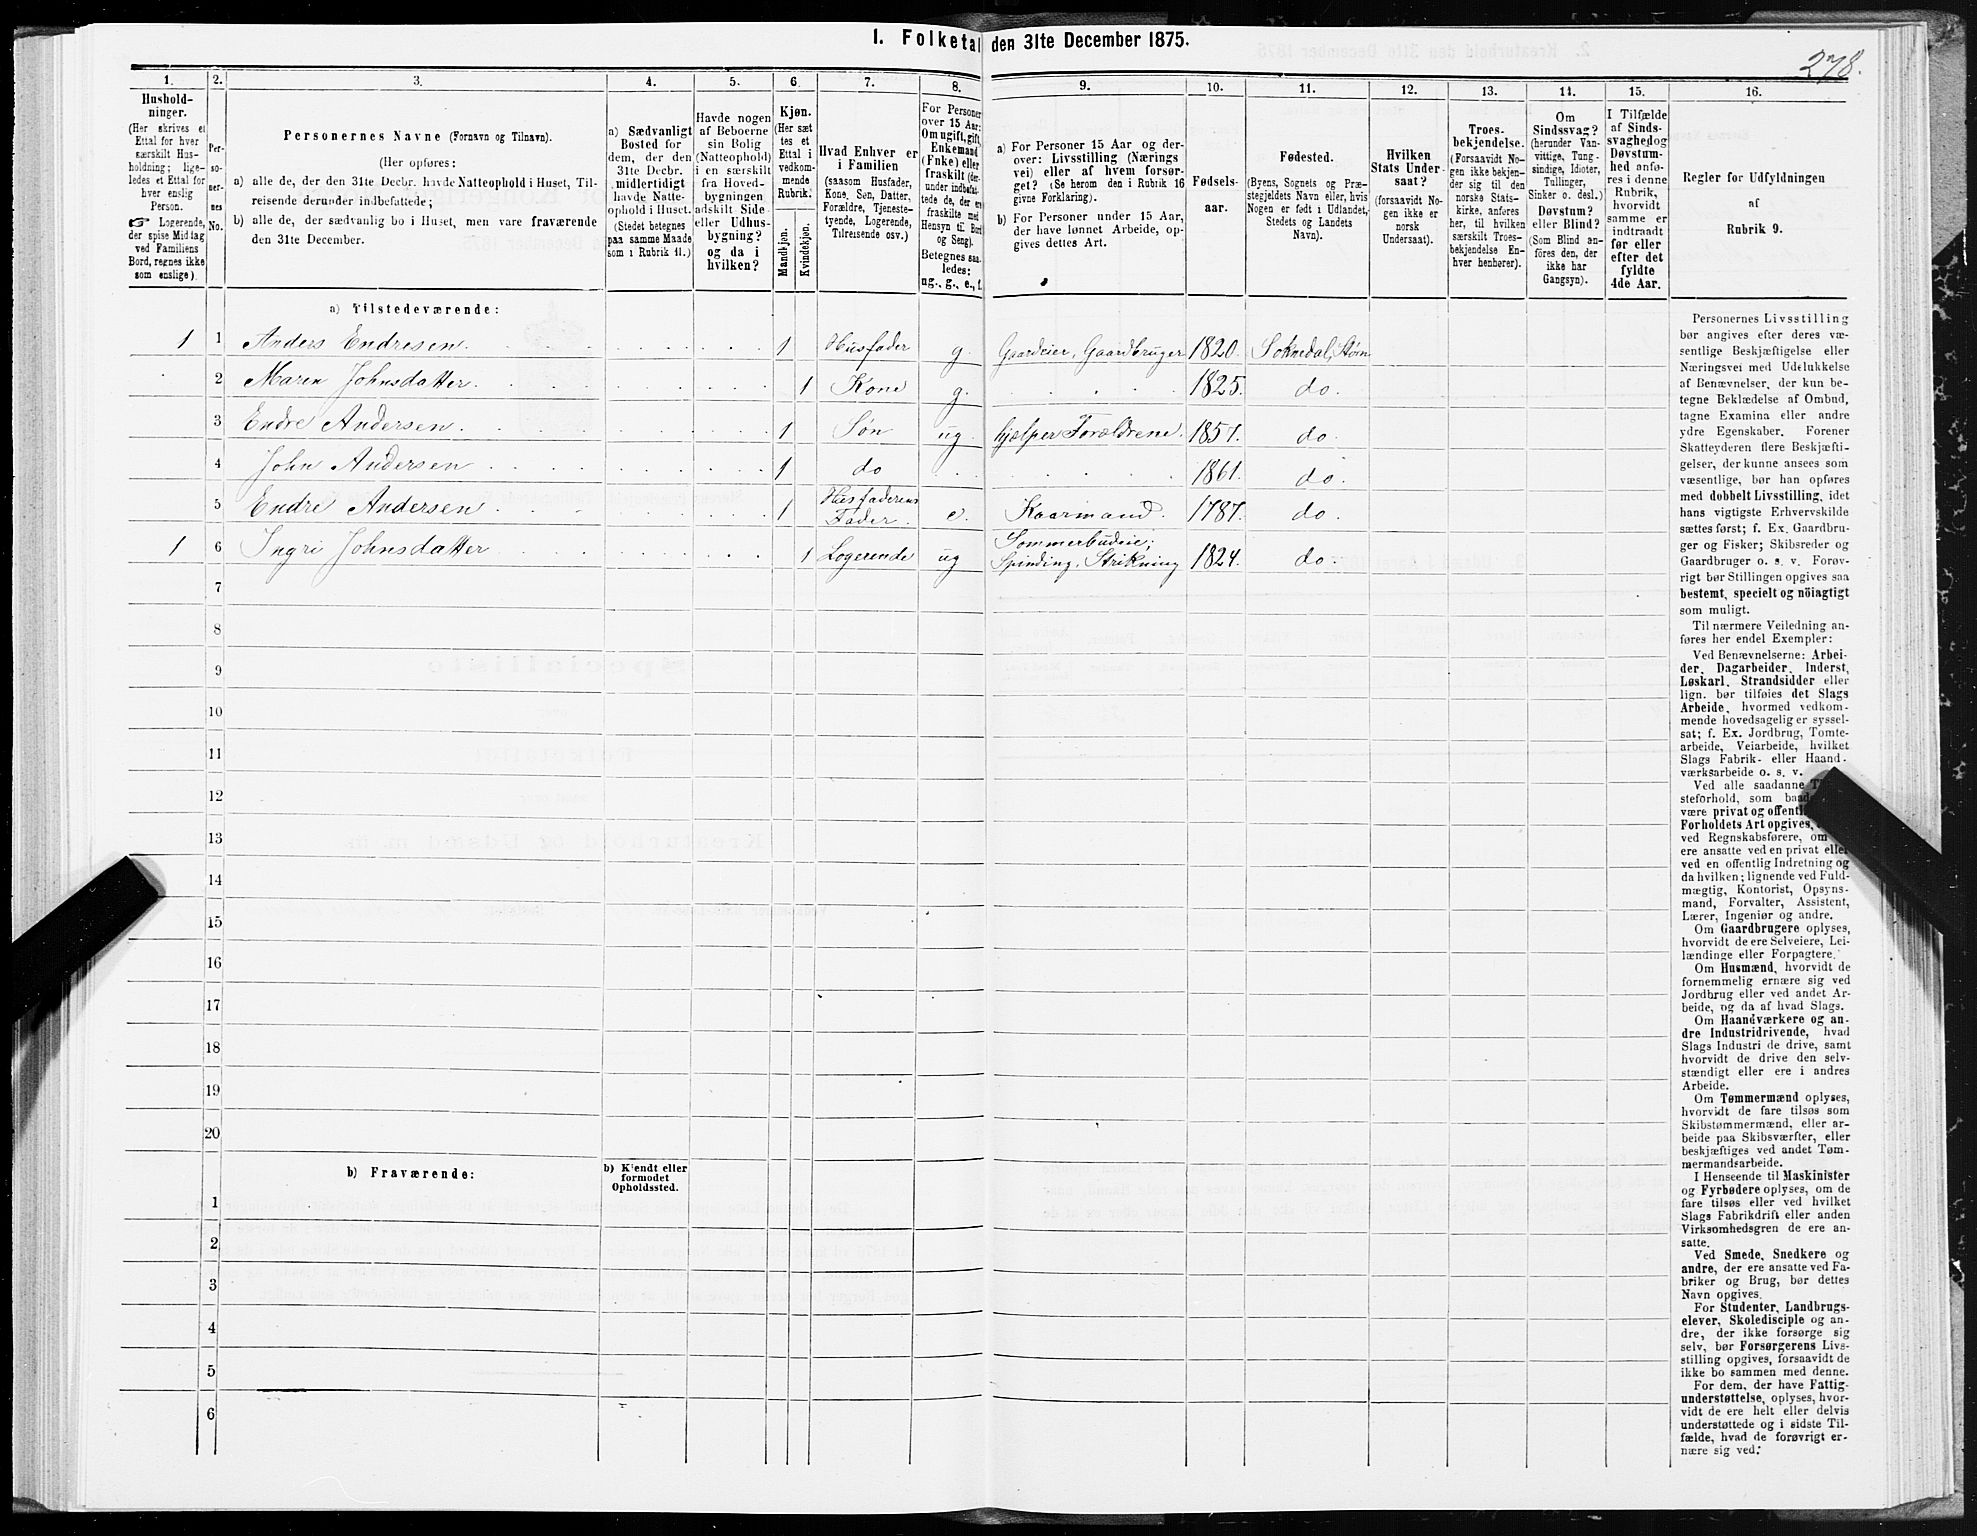 1. Folketal den 31te December 1875.
278.
1.
2.
3.
4.
5.
6.
7.
8.
9.
10.
11.
12.
13.
14.
15.
16.
Hushold-
ninger.
(Her skrives et
Ettal for hver
særskilt Hus-
holdning; lige-
ledes et Ettal for
hver enslig
Person.
☞ Logerende,
der spise Middag
ved Familiens
Bord, regnes ikke
som enslige).
Per-
so-
ner-
nes
No.
Personernes Navne (Fornavn og Tilnavn).
(Her opføres:
a) alle de, der den 31te Decbr. havde Natteophold i Huset, Til-
reisende derunder indbefattede;
b) alle de, der sædvanlig bo i Huset, men vare fraværende
den 31te December.
a) Sædvanligt
Bosted for
dem, der den
31te Decbr.
midlertidigt
havde Natte-
ophold i Huset.
(Stedet betegnes
paa samme Maade
som i Rubrik 11.)
Havde nogen
af Beboerne
sin Bolig
(Natteophold)
i en særskilt
fra Hoved-
bygningen
adskilt Side-
eller Udhus-
bygning?
og da i
hvilken?
Kjøn.
(Her sæt-
tes et
Ettal i
vedkom-
mende
Rubrik.)
Mandkjøn.
Kvindekjøn.
Hvad Enhver er
i Familien
(saasom Husfader,
Kone, Søn, Datter,
Forældre, Tjeneste-
tyende, Logerende,
Tilreisende osv.)
For Personer
over 15 Aar:
Om ugift, gift,
Enkemand
(Enke) eller
fraskilt (der-
under indbefat-
tede de, der ere
fraskilte med
Hensyn til Bord
og Seng).
Betegnes saa-
ledes:
ug., g., e., f.
a) For Personer 15 Aar og der-
over: Livsstilling (Nærings-
vei) eller af hvem forsør-
get? (Se herom den i Rubrik 16
givne Forklaring).
b) For Personer under 15 Aar,
der have lønnet Arbeide, op-
gives dettes Art.
Fødsels-
aar.
Fødested.
(Byens, Sognets og Præ-
stegjeldets Navn eller, hvis
Nogen er født i Udlandet,
Stedets og Landets
Navn).
Hvilken
Stats Under-
saat?
(forsaavidt No-
gen ikke er
norsk
Undersaat).
Troes-
bekjendelse.
(Forsaavidt No-
gen ikke bekjen-
der sig til den
norske Stats-
kirke, anføres
her, til hvilken
særskilt Troes-
bekjendelse En-
hver henhører).
Om
Sindssvag?
(herunder Van-
vittige, Tung-
sindige, Idioter,
Tullinger,
Sinker o. desl.)
Døvstum?
eller Blind?
(Som Blind an-
føres den, der
ikke har
Gangsyn).
I Tilfælde
af Sinds-
svaghed og
Døvstum-
hed anfø-
res i denne
Rubrik,
hvorvidt
samme er
indtraadt
før eller
efter det
fyldte
4de Aar.
Regler for Udfyldningen
af
Rubrik 9.
a) Tilstedeværende:
1 1 Anders Endresen 1 Husfader g. Gaardeier, Gaardbruger 1820. Soknedal, Støren
2 Maren Johnsdatter. 1 Kone g. 1825. do.
3 Endre Andersen. 1 Søn ug. hjælper Forældrene. 1857. do.
4 John Andersen 1 do 1861. do.
5 Endre Andersen 1 Husfaderens Fader. e. Kaarmand. 1787. do.
1 6 Ingri Johnsdatter 1 Logerende ug Sommerbudeie; Spinding, Strikning 1824. do.
7
8
9
10
11
12
13
14
15
16
17
18
19
20
b) Fraværende:
b) Kjendt eller
formodet
Opholdssted.
1
2
3
4
5
6
Personernes Livsstilling
bør angives efter deres væ-
sentlige Beskjæftigelse eller
Næringsvei med Udelukkelse
af Benævnelser, der kun be-
tegne Beklædelse af Ombud,
tagne Examina eller andre
ydre Egenskaber. Forener
Skatteyderen flere Beskjæfti-
gelser, der kunne ansees som
væsentlige, bør han opføres
med dobbelt Livsstilling, idet
hans vigtigste Erhvervskilde
sættes først; f. Ex. Gaardbru-
ger og Fisker; Skibsreder og
Gaardbruger o. s. v. Forøv-
rigt bør Stillingen opgives saa
bestemt, specielt og nöiagtigt
som muligt.
Til nærmere Veiledning an-
føres her endel Exempler:
Ved Benævnelserne: Arbei-
der, Dagarbeider, Inderst,
Løskarl, Strandsidder eller
lign. bør tilføies det Slags
Arbeide, hvormed vedkom-
mende hovedsagelig er syssel-
sat; f. Ex. Jordbrug, Tomte-
arbeide, Veiarbeide, hvilket
Slags Fabrik- eller Haand-
værksarbeide o. s. v.
Ved alle saadanne
steforhold, som
være privat og
Forholdets Art opgives,
ved Regnskabsførere, om
ere ansatte ved en privat eller
ved en offentlig Indretning og
da hvilken; lignende ved Fuld-
mægtig, Kontorist, Opsyns-
mand, Forvalter, Assistent,
Lærer, Ingeniør og andre.
Om Gaardbrugere oplyses,
hvorvidt de ere Selveiere, Lei-
lændinge eller Forpagtere.
Om Husmænd, hvorvidt de
fornemmelig ernære sig ved
Jordbrug eller ved andet Ar-
beide, og da af hvad Slags.
Om Haandværkere og an-
dre Industridrivende, hvad
Slags Industri de drive, samt
hvorvidt de drive den selv-
stændigt eller ere i andres
Arbeide.
Om Tømmermænd oplyses,
hvorvidt de fare tilsøs som
Skibstømmermænd, eller ar-
beide paa Skibsværfter, eller
beskjæftiges ved andet Tøm-
mermandsarbeide.
I Henseende til Maskinister
og Fyrbødere oplyses, om de
fare tilsøs eller ved hvilket
Slags Fabrikdrift eller anden
Virksomhedsgren de ere an-
satte.
Ved Smede, Snedkere og
andre, der ere ansatte ved Fa-
briker og Brug, bør dettes
Navn opgives.
For Studenter, Landbrugs-
elever, Skoledisciple og an-
dre, der ikke forsørge sig
selv, bør Forsørgerens Livs-
stilling opgives, forsaavidt de
ikke bo sammen med denne.
For dem, der have Fattig-
understøttelse, oplyses, hvor-
vidt de ere helt eller delvis
understøttede og i sidste Til-
fælde, hvad de forøvrigt er-
nære sig ved.